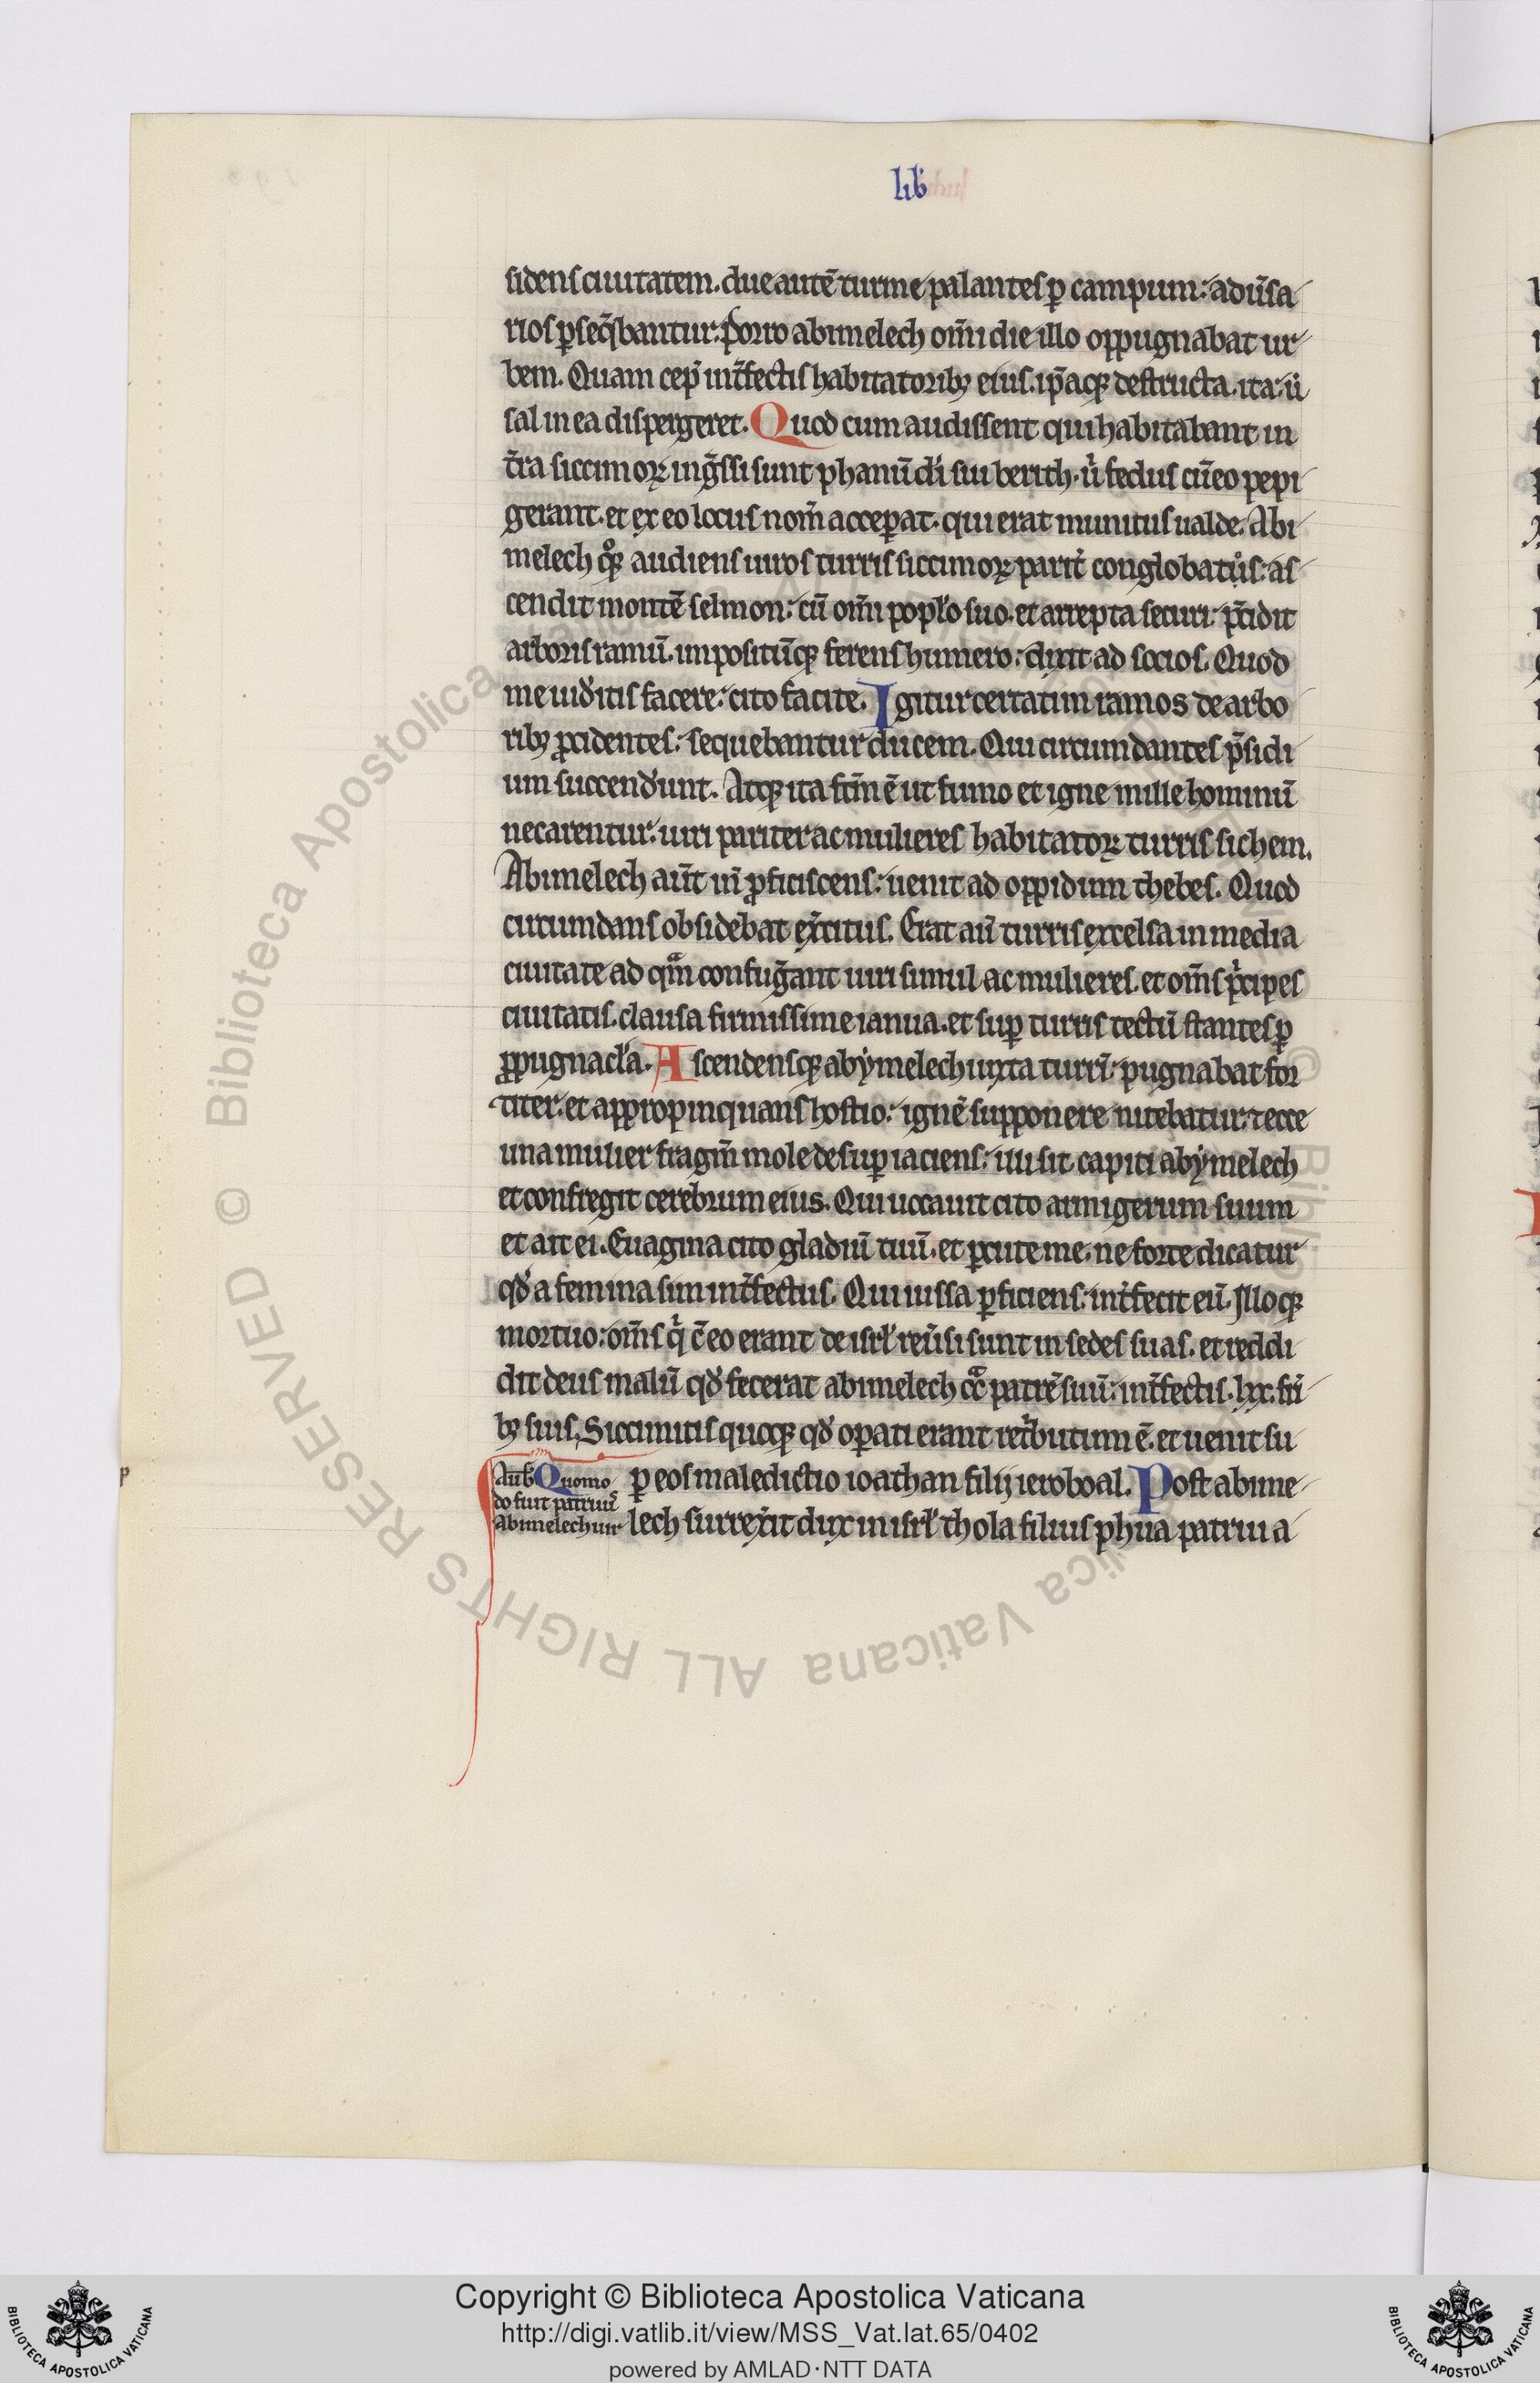 lib̾
sidens ciuitatem. due autē turme palantes ꝑ campum: adūsa
rios ꝑseq̄bantur. Porro abimelech om̄i die illo oppugnabat ur
bem. Quam cep̄ int̄fectis habitatoribꝫ eius. ip̄aqꝫ destructa. ita. ü
sal in ea dispergeret. Quod cum audissent qui habitabant in
t̄ra siccimoꝝ ing̃ssi sunt phanū dī sui berith. u̾ fedus cū eo pepi
gerant. et ex eo locus nom̄ acceꝑat. qui erat munitus ualde. Abi
melech qͦqꝫ audiens uiros turris siccimoꝝ parit̾ conglobatus: as
cendit montē selmon: cū om̄i popl̾o suo. et arrepta securi: p̄cidit
arboris ramū. impositūqꝫ ferens humero: dixit ad socios. Quod
me uid̾itis facere: cito facite. Igitur certatim ramos de arbo
ribꝫ p̄cidentes: sequebantur ducem. Qui circumdantes p̄sidi
um succend̾unt. Atqꝫ ita fc̄m ē ut fumo et igne mille hominū
necarentur: uiri pariter ac mulieres habitatoꝝ turris sichem.
Abimelech aūt in̄ ꝓficiscens: uenit ad oppidum thebes. Quod
circumdans obsidebat ex̾citus. Erat aū turris excelsa in media
ciuitate ad qᵃm confug̾ant uiri simul ac mulieres. et om̄s pͥcipes
ciuitatis. clausa firmissime ianua. et suꝑ turris tectū stantes ꝑ
ꝓpugnacl̾a. Ascendensqꝫ abymelech iuxta turrī: pugnabat for
titer. et appropinquans hostio: ignē supponere nitebatur. ⁊ ecce
una mulier fragm̄ mole desuꝑ iaciens: illisit capiti abymelech
et confregit cerebrum eius. Qui uocauit cito armigerum suum
et ait ei. Euagina cito gladiū tuū. et ꝑcute me. ne forte dicatur
qd̾ a femina sim int̄fectus. Qui iussa ꝑficiens: int̄fecit eū. Illoqꝫ
mortuo: om̄s qͥ c̄ eo erant de isrl̾ reūsi sunt in sedes suas. et reddi
dit deus malū qd̾ fecerat abimelech cᵃ patrē suū: int̄fectis .lxx. fr̄i
bꝫ suis. Siccimitis quoqꝫ qd̾ oꝑati erant ret̾butum ē. et uenit su
ꝑ eos maledictio ioathan filij ieroboal. Post abime
lech surrex̾it dux in isrl̾ thola filius phua patrui a
Aūḡ Quomo
do fuit patruꝰ
abimelech uir
Copyright © Biblioteca Apostolica Vaticana
http://digi.vatlib.it/view/MSS_Vat.lat.65/0402
powered by AMLAD·NTT DATA
BIBLIOTECA APOSTOLICA VATICANA
BIBLIOTECA APOSTOLICA VATICANA
© Biblioteca Apostolica Vaticana ALL RIGHTS RESERVED